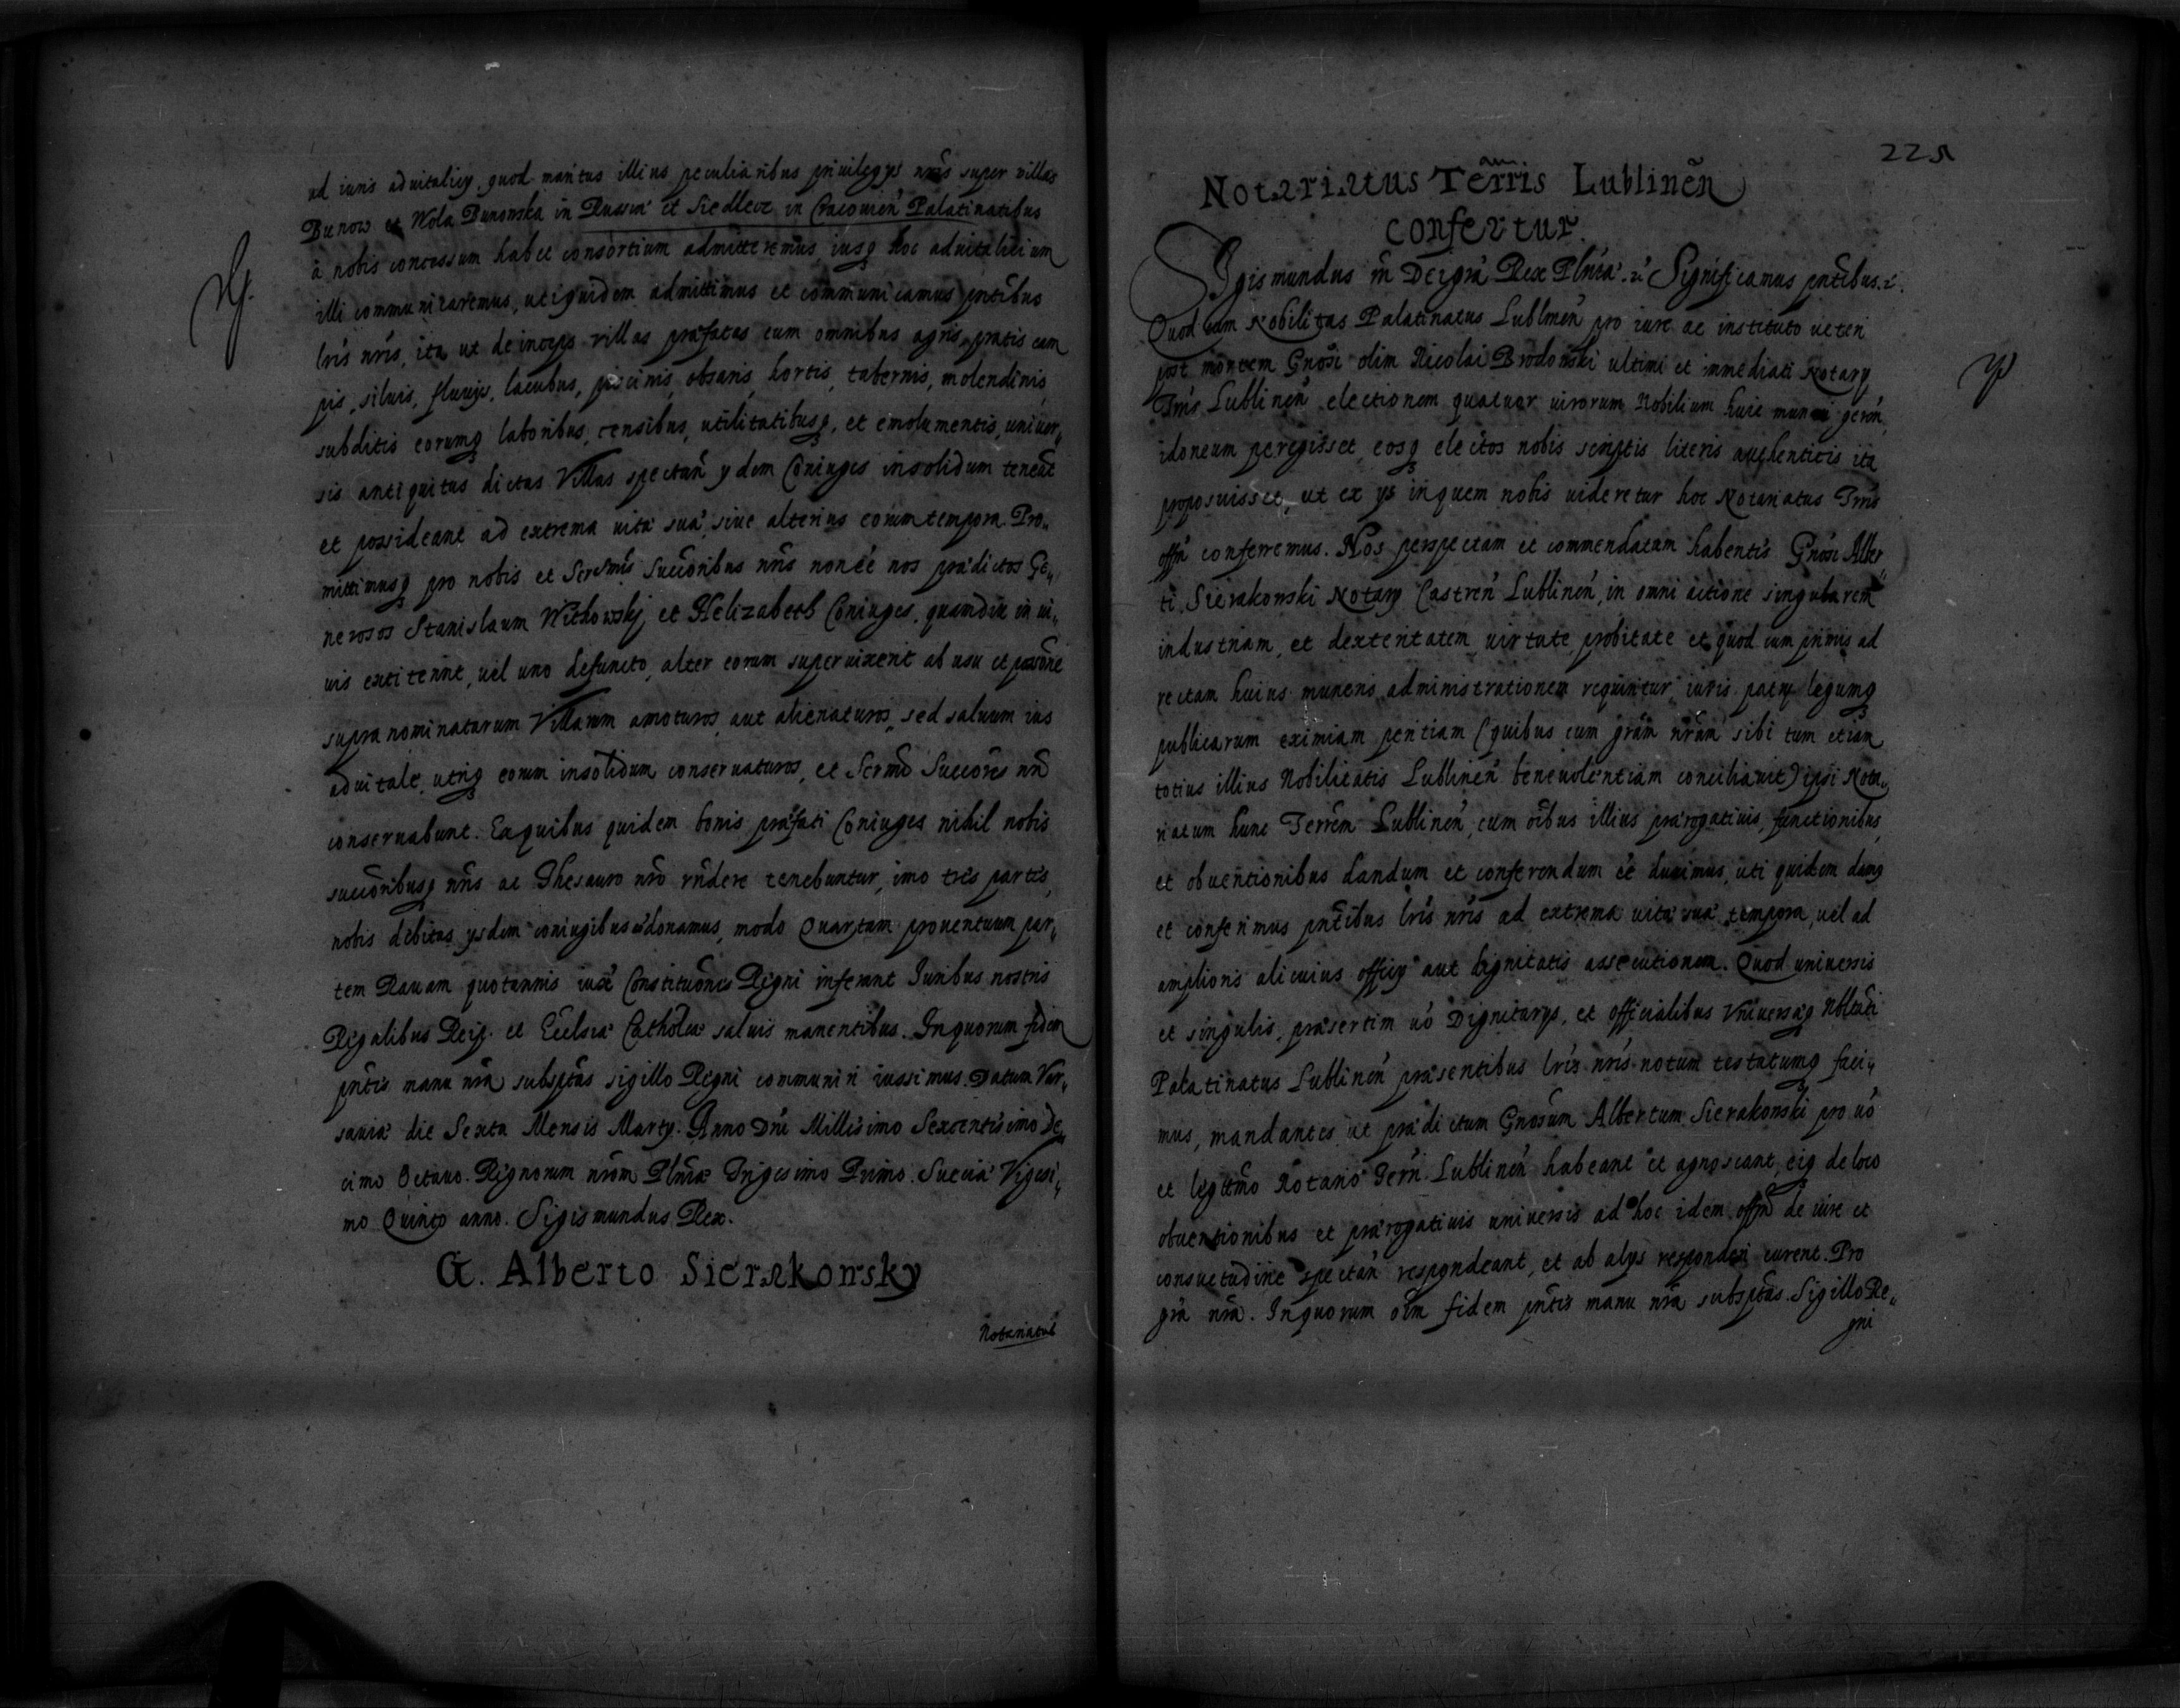 ad iuris aduitalicy quod maritus illius peculiaribus priuilegys nrĩs super villas
Bunow et Wola Bunowska in Russia et Siedlecz in Cracouien̄ Palatinatibus
à nobis concessum habet consortium admitteremus iusq hoc aduitalicium
illi communicaremus, utiquidem admittimus et communicamus pntibus
lrĩs nrĩs, ita ut deinceps villas præfatas cum omnibus agris, pratis cam
pis, siluis, fluuijs, lacubus, piscinis, obsaris, hortis, tabernis, molendinis,
subditis eorumq laboribus, censibus, utilitatibusq, et emolumentis, uniuer„
sis antiquitus dictas Villas spectan̄ ydem Coniuges insolidum teneāt
et possideant ad extrema vitæ suæ, siue alterius eorum tempora. Pro„
mittimusq pro nobis et Serenmĩs Succoribus nrĩs non eē nos prædictos Ge„
nerosos Stanislaum Witkowskj et Helizabeth Coniuges, quamdiu in ui„
uis extiterint, uel uno defuncto, alter eorum superuixerit ab usu et possōne
supra nominatarum Villarum amoturos, aut alienaturos, sed saluum ius
aduitale, utriq eorum insolidum conseruaturos, et Sermĩ Succores nrĩ
conseruabunt. Exquibus quidem bonis præfati Coniuges nihil nobis
succoribusq nrĩs ac Thesauro nrō rn̄dere tenebuntur, imo tres partes,
nobis debitas, ysdem coniugibus cōdonamus, modo Quartam prouentuum par„
tem Rauam quotannis iuxta Constituōnes Regni inferant Juribus nostris
Regalibus Reip. et Ecclsiæ Catholcæ saluis manentibus. Inquorum fidem
pn̄tes manu nrā subsptās sigillo Regni communiri iussimus. Datum Var„
sauiæ die Sexta Mensis Marty. Anno Dnī Millesimo Sexcentesimo De„
cimo Octauo. Regnorum nrōm Plniæ Trigesimo Primo. Sueciæ Vigesi„
mo Quinto anno. Sigismundus Rex.
G. Alberto Sierakowsky
Notariatus
225
Notariatus Terr̄is Lublinen̄
confertur.
Sigismundus III Dei grā Rex Plniæ. Significamus pntibus.
Quod cum Nobilitas Palatinatus Lublinen̄ pro iure ac instituto ueteri
post mortem Gnōsi olim Nicolai Brodowski ultimi et immediati Notary
Trrīs Lublinen̄ electionem quatuor uirorum Nobilium huic muneri geren̄,
idoneum peregisset, eosq electos nobis scriptis literis authenticis ita
proposuisset, ut ex ys inquem nobis uideretur hoc Notariatus Trrīs
offm̄ conferremus. Nos perspectam et commendatam habentes Gnōsi Alber„
ti Sierakowski Notary Castren̄ Lublinen̄, in omni actione singularem
industriam, et dexteritatem, uirtute, probitate et quod cum primis ad
rectam huius muneris administrationem requiritur, iuris patry legumq
publicarum eximiam peritiam (quibus cum grām nrām sibi tum etiam
totius illius Nobilitatis Lublinen̄ beneuolentiam conciliauit) ipsi Nota„
riatum hunc Terrēm Lublinen̄, cum oībus illius prærogatiuis, functionibus,
et obuentionibus dandum et conferendum eē duximus, uti quidem damq
et conferimus pn̄tibus lrīs nrīs ad extrema uitæ suæ tempora, uel ad
amplioris alicuius officy aut dignitatis assecutionem. Quod uniuersis
et singulis, præsertim uō Dignitarys, et officialibus Vniuersæq Nbltati
Palatinatus Lublinen̄ præsentibus lrīs nrīs notum testatumq faci„
mus, mandantes ut prædictum Gnōsum Albertum Sierakowski pro uō
et legitmo Notario Terrī Lublinen̄ habeant et agnoscant, eiq de loco
obuentionibus et prærogatiuis uniuersis ad hoc idem offm̄ de iure et
consuetudine spectan̄ respondeant, et ab alys responderi curent. Pro
grā nrā. Inquorum oīm fidem pn̄tes manu nrā subsptās. Sigillo Re„
gni